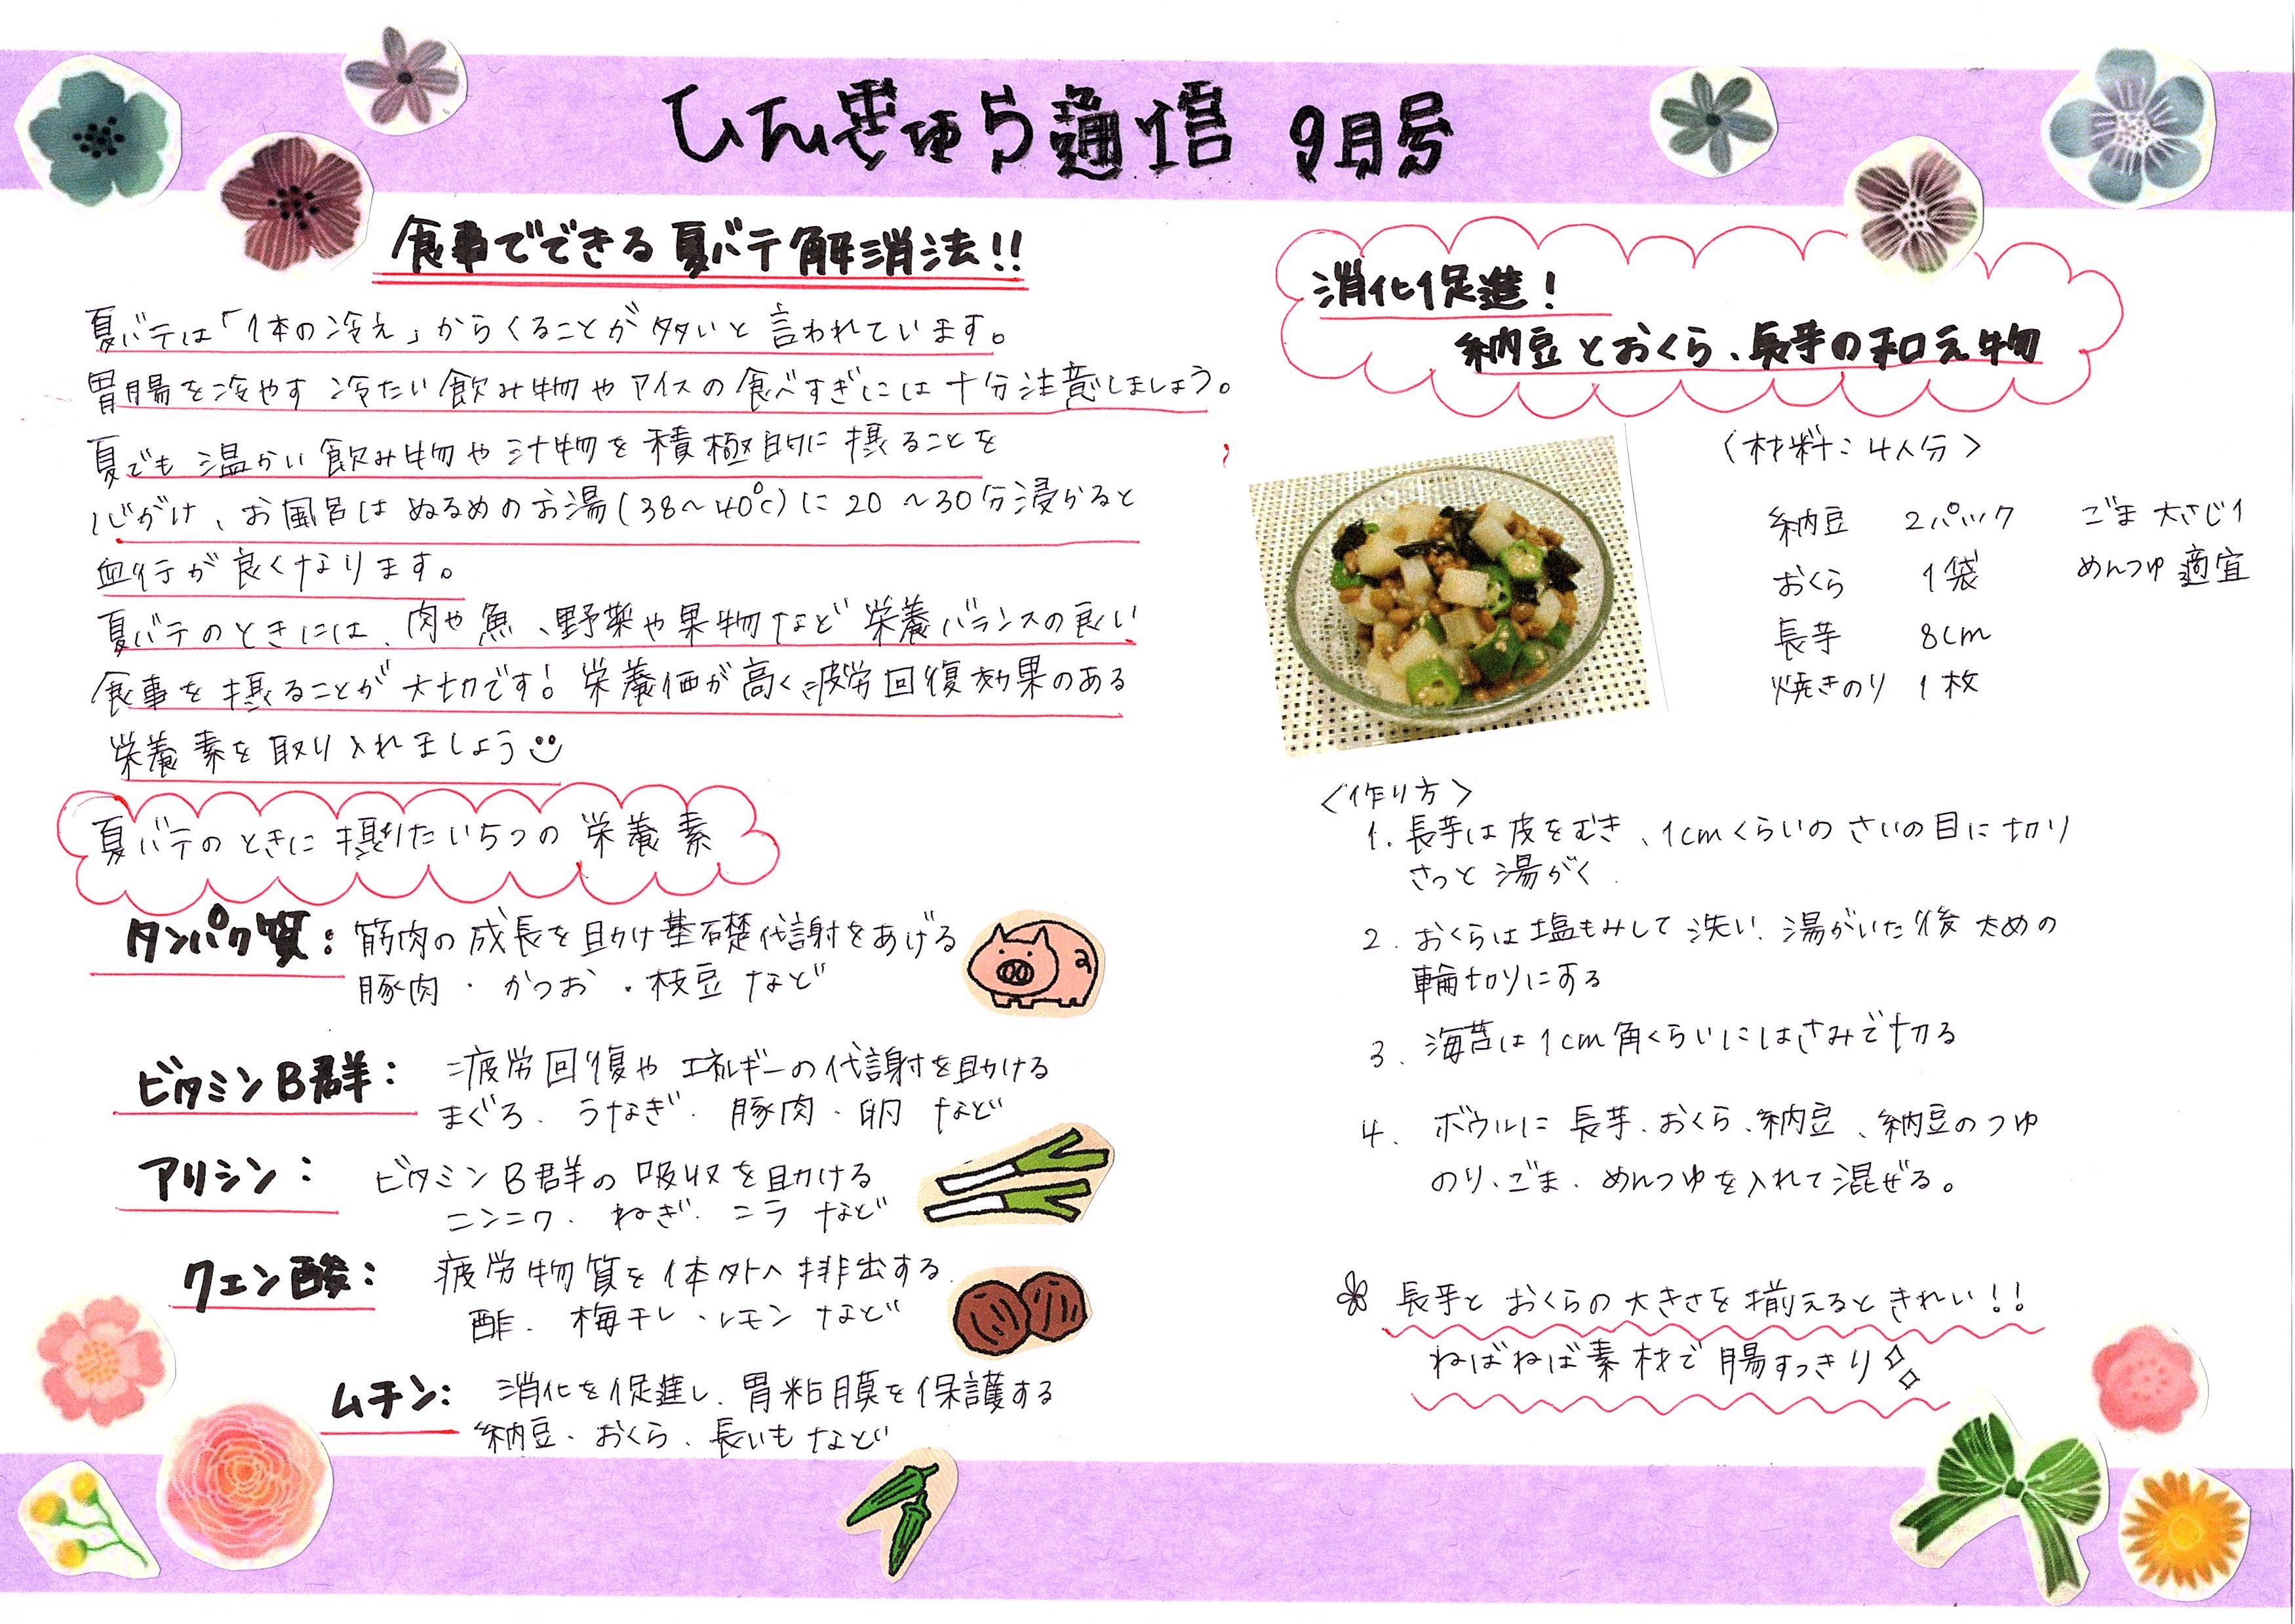 しんきゅう通信 9月号
食事でできる夏バテ解消法!!
夏バテは「体の冷え」からくることが多いと言われています。
胃腸を冷やす冷たい飲み物やアイスの食べすぎには十分注意しましょう。
夏でも温かい飲み物や汁物を積極的に摂ることを
心がけ、お風呂はぬるめのお湯(38〜40℃)に20〜30分浸かると
血行が良くなります。
夏バテのときには、肉や魚、野菜や果物など栄養バランスの良い
食事を摂ることが大切です!栄養価が高く疲労回復効果のある
栄養素を取り入れましょう
夏バテのときに摂りたい5つの栄養素
タンパク質:筋肉の成長を助け基礎代謝をあげる
豚肉・かつお・枝豆など
ビタミンB群:疲労回復やエネルギーの代謝を助ける
まぐろ・うなぎ・豚肉・卵など
アリシン:ビタミンB群の吸収を助ける
ニンニク・ねぎ・ニラなど
クエン酸:疲労物質を体外へ排出する
酢・梅干し・レモンなど
ムチン:消化を促進し、胃粘膜を保護する
納豆・おくら・長いもなど
消化促進!
納豆とおくら、長芋の和え物
〈材料:4人分〉
納豆 2パック ごま 大さじ1
おくら 1袋 めんつゆ 適宜
長芋 8cm
焼きのり 1枚
〈作り方〉
1. 長芋は皮をむき、1cmくらいのさいの目に切り
さっと湯がく
2. おくらは塩もみして洗い、湯がいた後太めの
輪切りにする
3. 海苔は1cm角くらいにはさみで切る
4. ボウルに長芋、おくら、納豆、納豆のつゆ
のり、ごま、めんつゆを入れて混ぜる。
長芋とおくらの大きさを揃えるときれい!!
ねばねば素材で腸すっきり